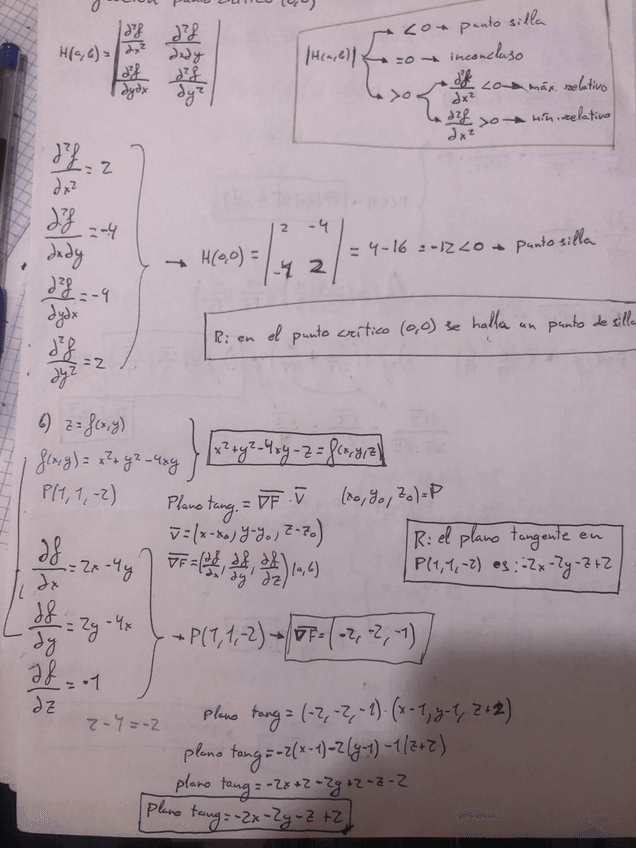 punto crítico (0,0)
H(a,b) = | ∂²f/∂x² ∂²f/∂x∂y |
| ∂²f/∂y∂x ∂²f/∂y² |
|H(a,b)| → <0 → punto silla
→ =0 → inconcluso
→ >0 → ∂²f/∂x² <0 → máx. relativo
→ ∂²f/∂x² >0 → mín. relativo
∂²f/∂x² = 2
∂²f/∂x∂y = -4
∂²f/∂y∂x = -4
∂²f/∂y² = 2
→ H(0,0) = | 2 -4 | = 4-16 = -12 <0 → punto silla
| -4 2 |
R: en el punto crítico (0,0) se halla un punto de silla
6) z = f(x,y)
f(x,y) = x²+y²-4xy
x²+y²-4xy-z = f(x,y,z)
P(1,1,-2)
Plano tang. = ∇F · V (x₀,y₀,z₀)=P
V = (x-x₀, y-y₀, z-z₀)
∇F = (∂f/∂x, ∂f/∂y, ∂f/∂z)(a,b)
R: el plano tangente en
P(1,1,-2) es: -2x-2y-z+2
∂f/∂x = 2x-4y
∂f/∂y = 2y-4x
∂f/∂z = -1
→ P(1,1,-2) → ∇F = (-2,-2,-1)
2-4=-2
plano tang = (-2,-2,-1)·(x-1,y-1,z+2)
plano tang = -2(x-1)-2(y-1)-1(z+2)
plano tang = -2x+2-2y+2-z-2
Plano tang = -2x-2y-z+2